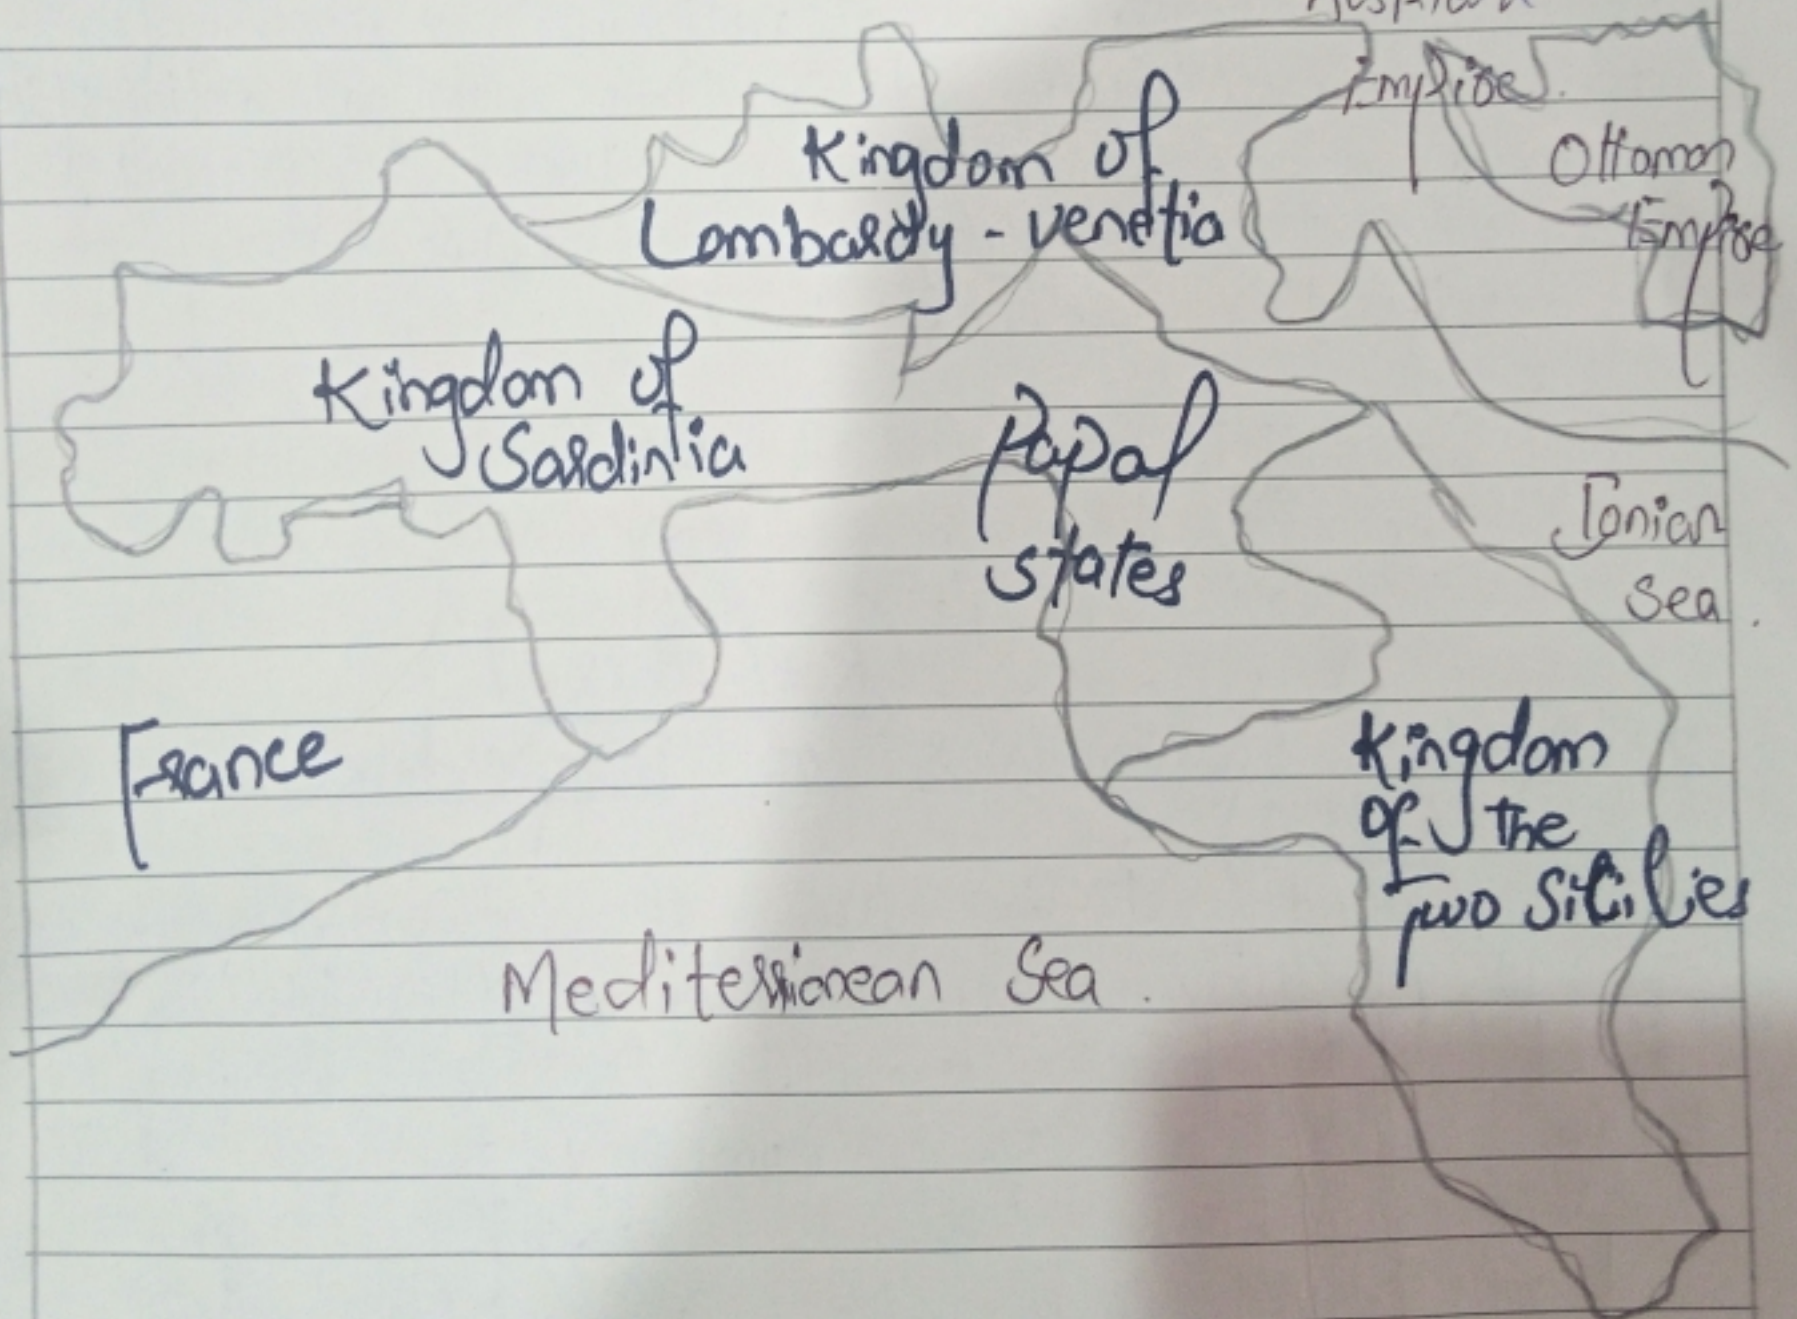 Empire.
Kingdom of
Lombardy - venetia
Ottoman
Empire
Kingdom of
Sardinia
Papal
states
Ionian
Sea.
France
Kingdom
of the
Two Sicilies
Mediterrianean Sea.